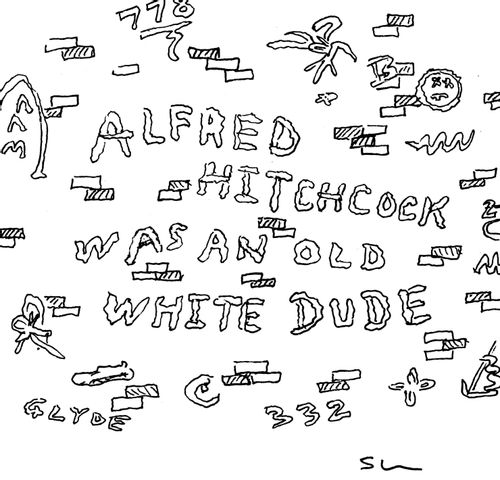 778
B
ALFRED
HITCHCOCK
WAS AN OLD
WHITE DUDE
C
GLYDE
332